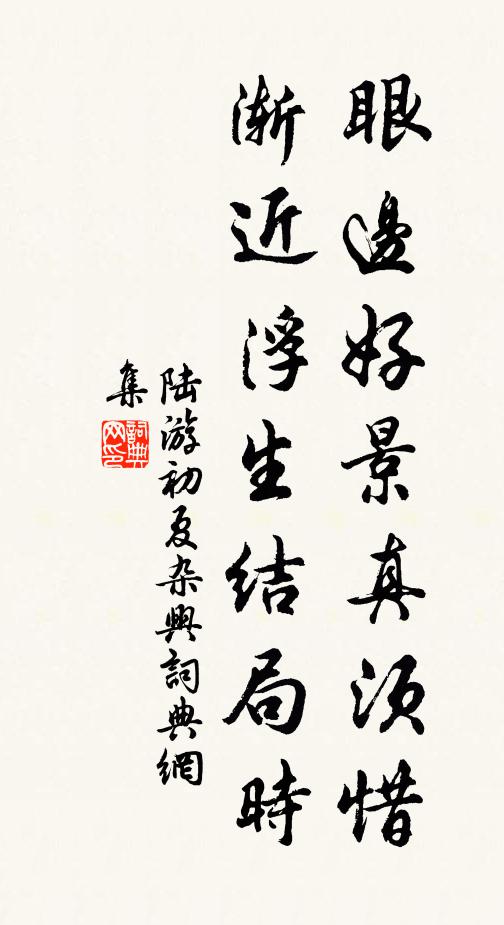 眼邊好景真須惜
漸近浮生結局時
陆游初夏杂興詞典網
集
詞典
网印